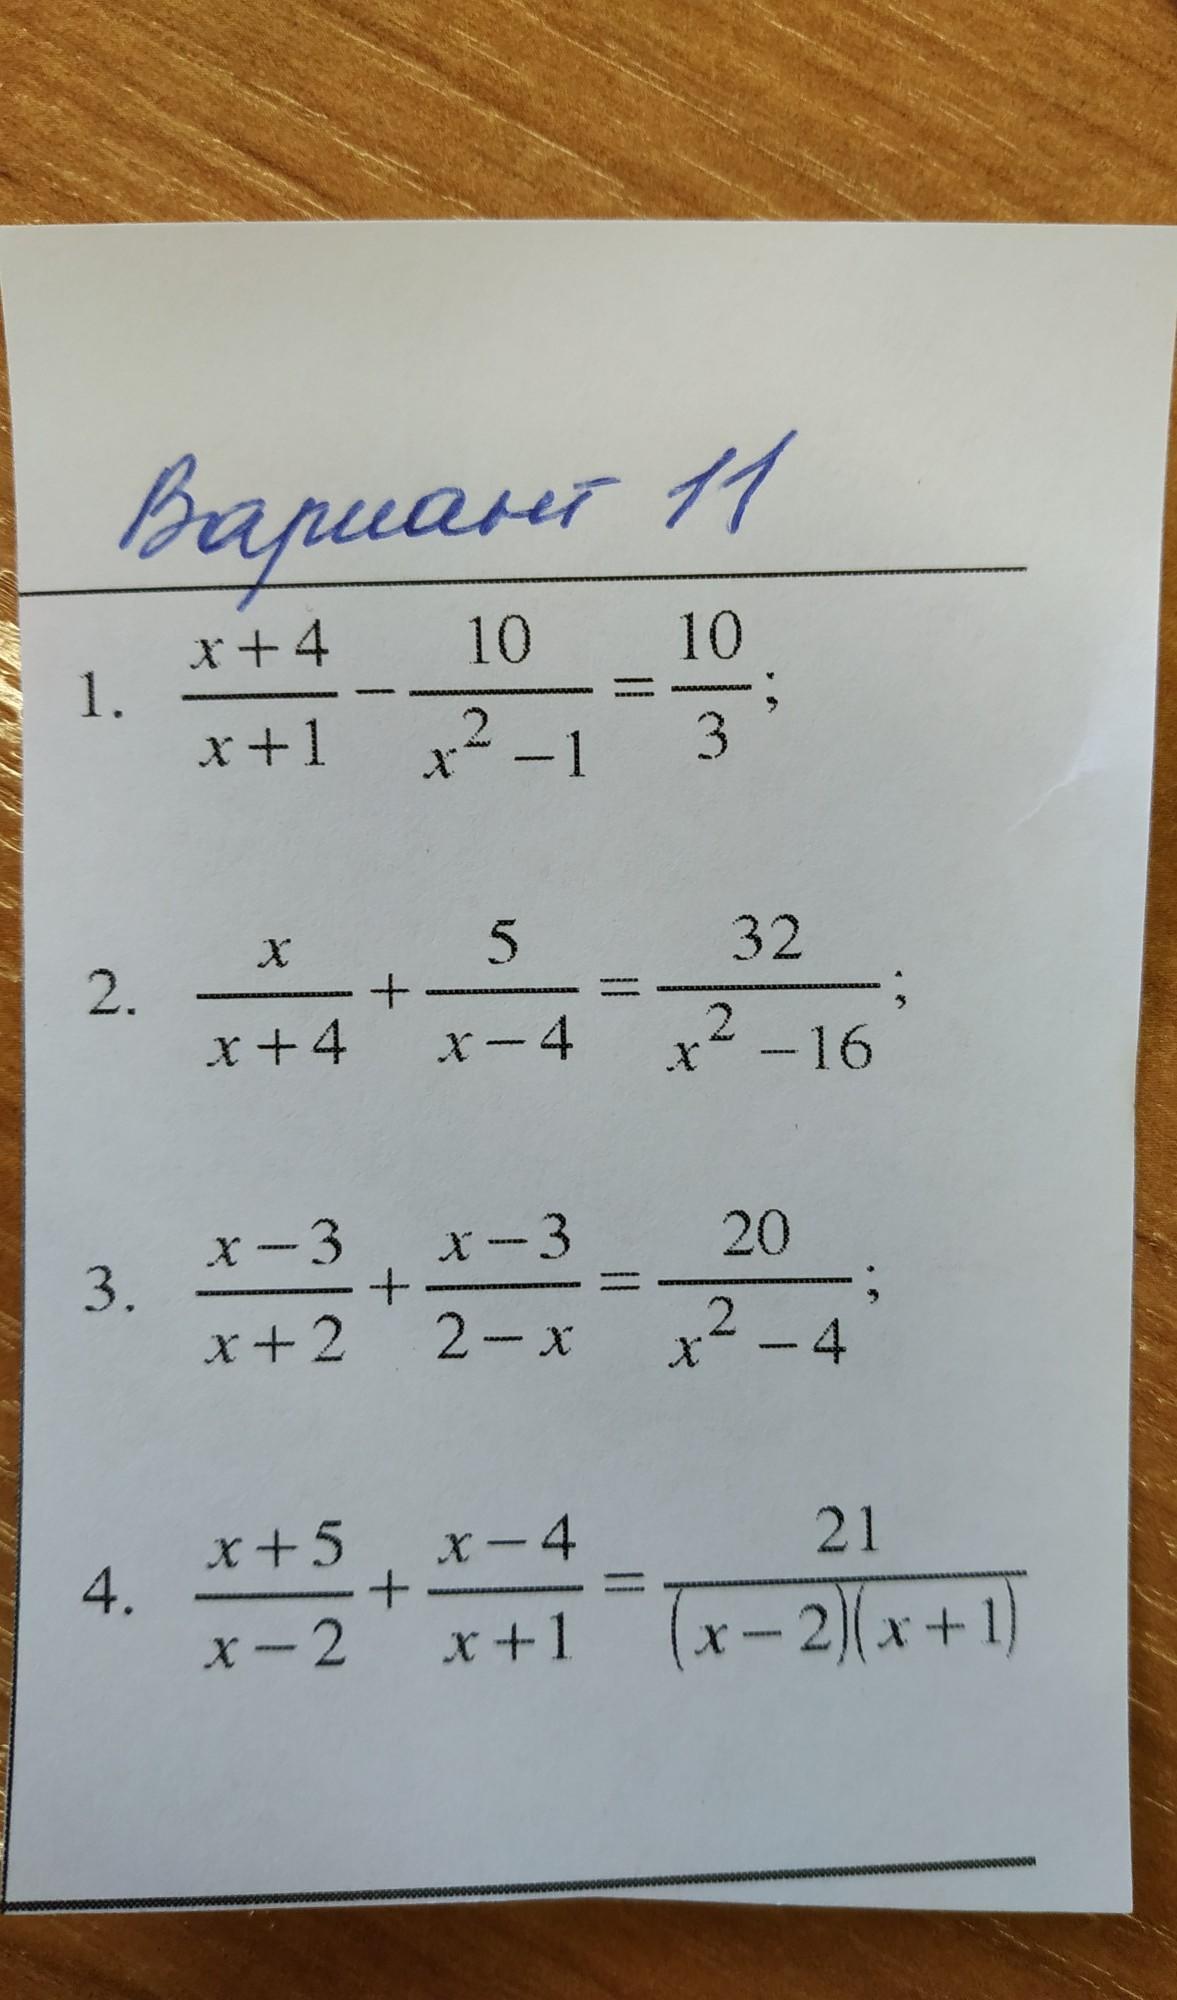 Вариант 11
1. \frac{x+4}{x+1} - \frac{10}{x^2-1} = \frac{10}{3};
2. \frac{x}{x+4} + \frac{5}{x-4} = \frac{32}{x^2-16};
3. \frac{x-3}{x+2} + \frac{x-3}{2-x} = \frac{20}{x^2-4};
4. \frac{x+5}{x-2} + \frac{x-4}{x+1} = \frac{21}{(x-2)(x+1)}